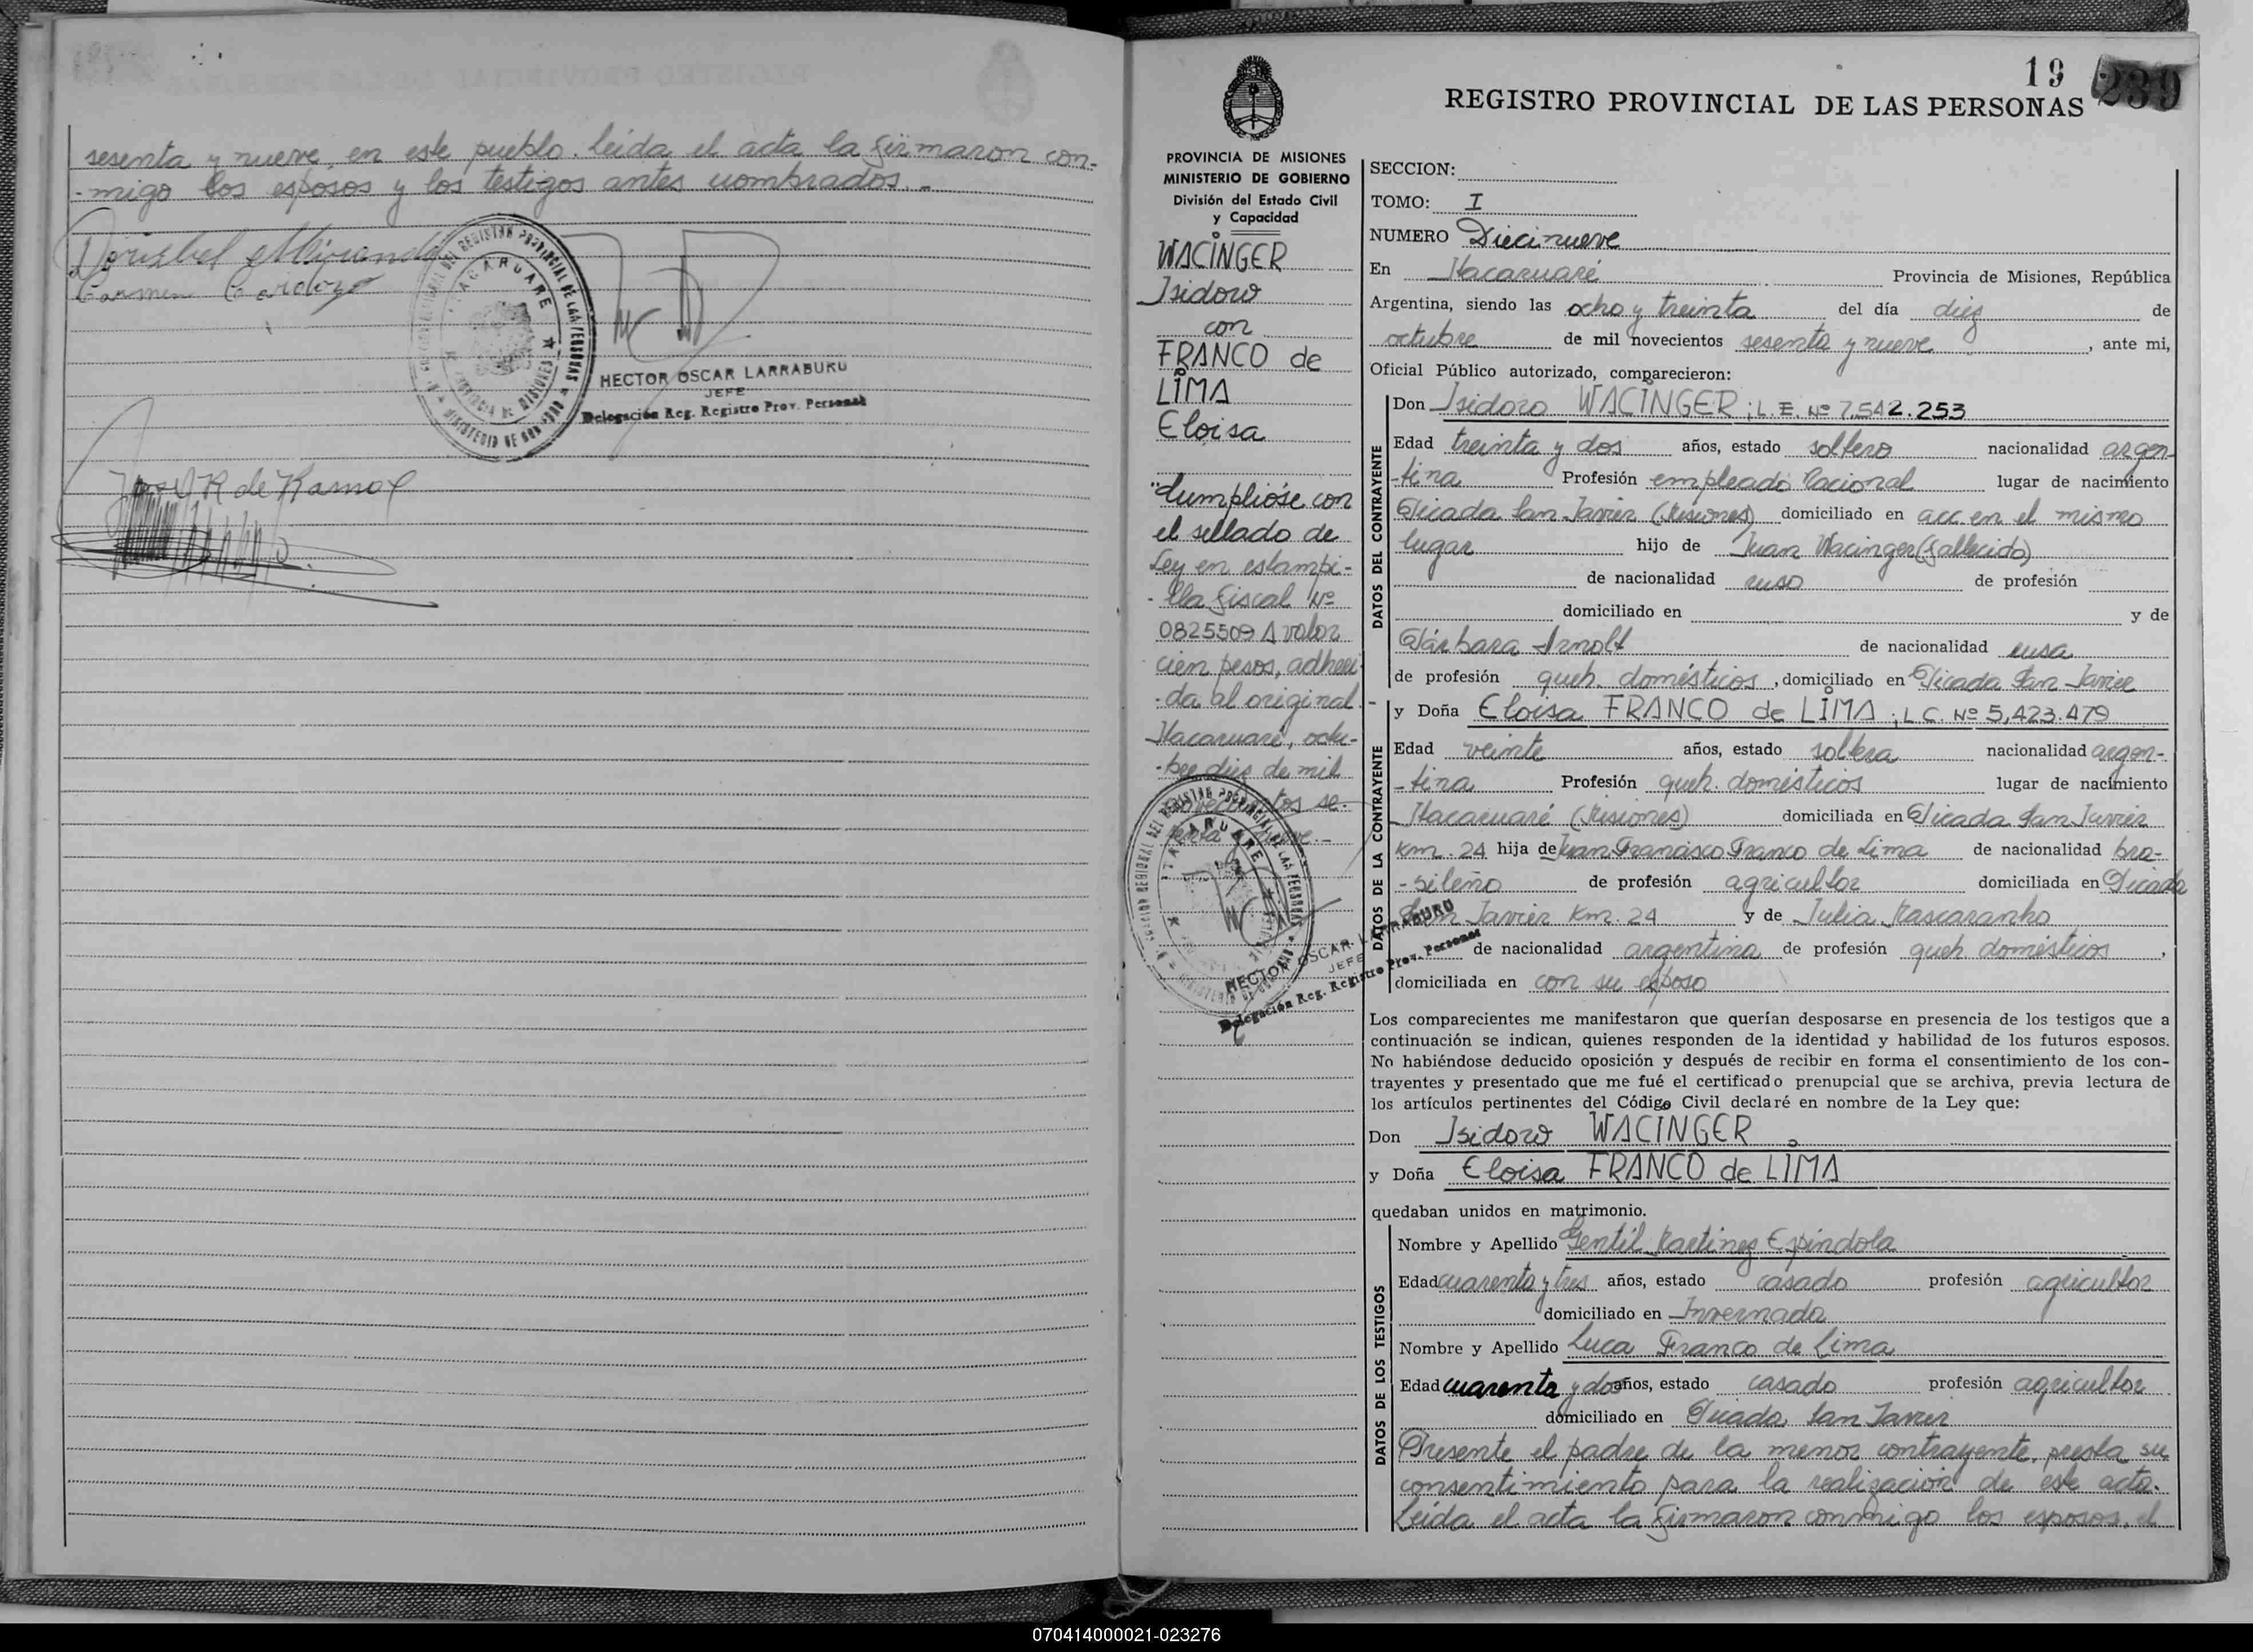 sesenta y nueve, en este pueblo. leída el acta la firmaron con-
-migo los esposos y los testigos antes nombrados.-
Carmen Cardozo
HECTOR OSCAR LARRABURU
JEFE
Delegación Reg. Registro Prov. Personas
R de Ramos
19
239
REGISTRO PROVINCIAL DE LAS PERSONAS
PROVINCIA DE MISIONES
MINISTERIO DE GOBIERNO
División del Estado Civil
y Capacidad
WACINGER
Isidoro
con
FRANCO de
LIMA
Eloisa
"Cumplióse con
el sellado de
Ley en estampi-
-lla fiscal Nº
0825509 A valor
cien pesos, adheri
-da al original.-
Itacaruaré, octu-
-bre diez de mil
novecientos se-
senta y nueve.-
HECTOR OSCAR LARRABURU
JEFE
Delegación Reg. Registro Prov. Personas
SECCION:
TOMO: I
NUMERO Diecinueve
En Itacaruaré Provincia de Misiones, República
Argentina, siendo las ocho y treinta del día diez de
octubre de mil novecientos sesenta y nueve, ante mi,
Oficial Público autorizado, comparecieron:
DATOS DEL CONTRAYENTE
Don Isidoro WACINGER; L.E. Nº 7.542.253
Edad treinta y dos años, estado soltero nacionalidad argen-
-tina Profesión empleado Nacional lugar de nacimiento
Picada San Javier (Misiones) domiciliado en acc. en el mismo
lugar hijo de Juan Wacinger (fallecido)
de nacionalidad ruso de profesión
domiciliado en y de
Bárbara Arnolt de nacionalidad rusa
de profesión queh. domésticos, domiciliado en Picada San Javier
DATOS DE LA CONTRAYENTE
y Doña Eloisa FRANCO de LIMA; L.C. Nº 5,423.479
Edad veinte años, estado soltera nacionalidad argen-
-tina Profesión queh. domésticos lugar de nacimiento
Itacaruaré (Misiones) domiciliada en Picada San Javier
Km. 24 hija de Juan Francisco Franco de Lima de nacionalidad bra-
-sileño de profesión agricultor domiciliada en Picada
San Javier Km. 24 y de Julia Mascaranho
de nacionalidad argentina de profesión queh. domésticos,
domiciliada en con su esposo
Los comparecientes me manifestaron que querían desposarse en presencia de los testigos que a
continuación se indican, quienes responden de la identidad y habilidad de los futuros esposos.
No habiéndose deducido oposición y después de recibir en forma el consentimiento de los con-
trayentes y presentado que me fué el certificado prenupcial que se archiva, previa lectura de
los artículos pertinentes del Código Civil declaré en nombre de la Ley que:
Don Isidoro WACINGER
y Doña Eloisa FRANCO de LIMA
quedaban unidos en matrimonio.
DATOS DE LOS TESTIGOS
Nombre y Apellido Gentil Martinez Espindola
Edad cuarenta y tres años, estado casado profesión agricultor
domiciliado en Invernada
Nombre y Apellido Luca Franco de Lima
Edad cuarenta y dos años, estado casado profesión agricultor
domiciliado en Picada San Javier
Presente el padre de la menor contrayente, presta su
consentimiento para la realización de este acta.
Leída el acta la firmaron conmigo los esposos, el
070414000021-023276